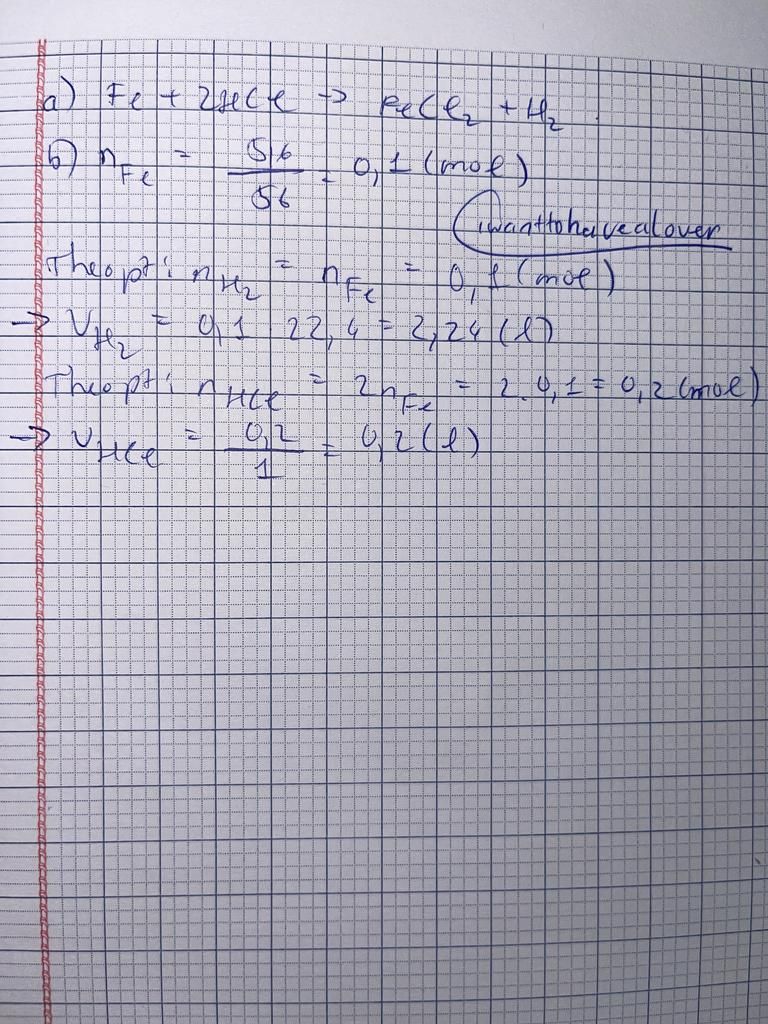 a) Fe + 2HCl -> FeCl₂ + H₂
b) nFe = 5,6/56 = 0,1 (mol)
iwanttohavealover
Theo pt: nH₂ = nFe = 0,1 (mol)
-> VH₂ = 0,1 . 22,4 = 2,24 (l)
Theo pt: nHCl = 2nFe = 2.0,1 = 0,2 (mol)
-> VHCl = 0,2/1 = 0,2 (l)